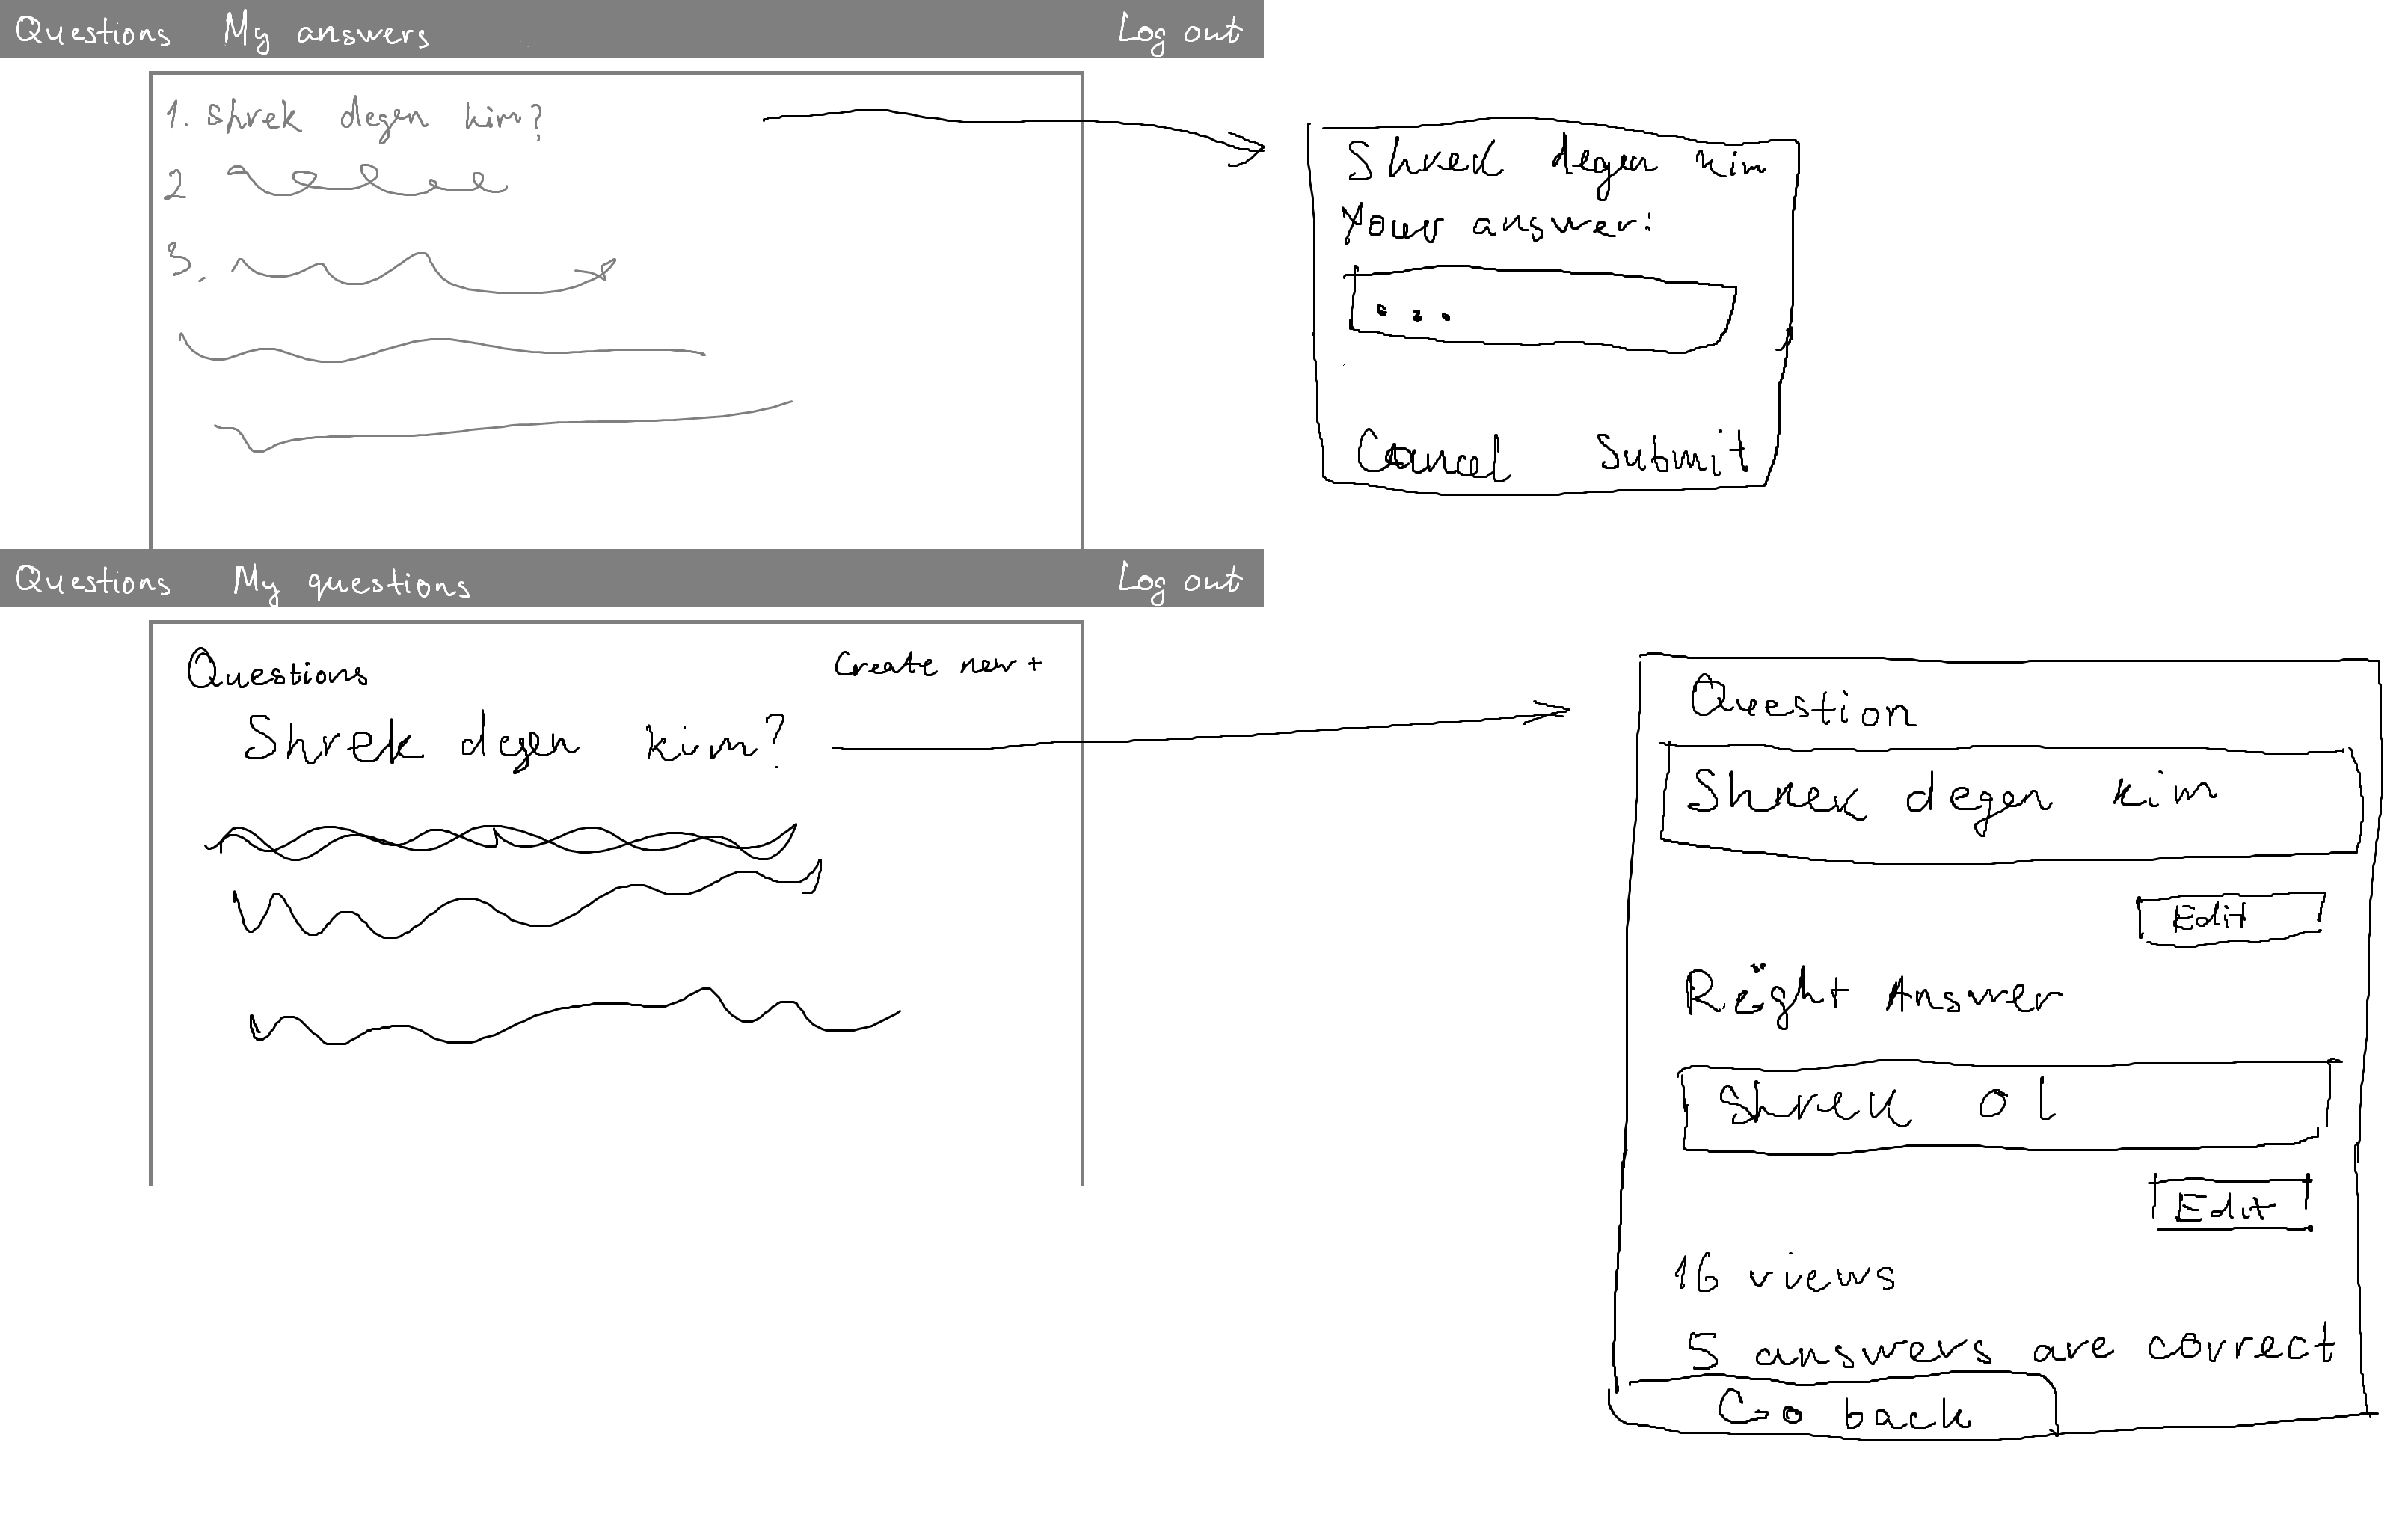 Questions My answers Log out
1. Shrek degen kim?
2
3.
Shred degen kim
Your answer:
...
Cancel Submit
Questions My questions Log out
Questions Create new +
Shrek degen kim?
Question
Shrek degen kim
Edit
Right Answer
Shrek ol
Edit
16 views
5 answers are correct
Go back